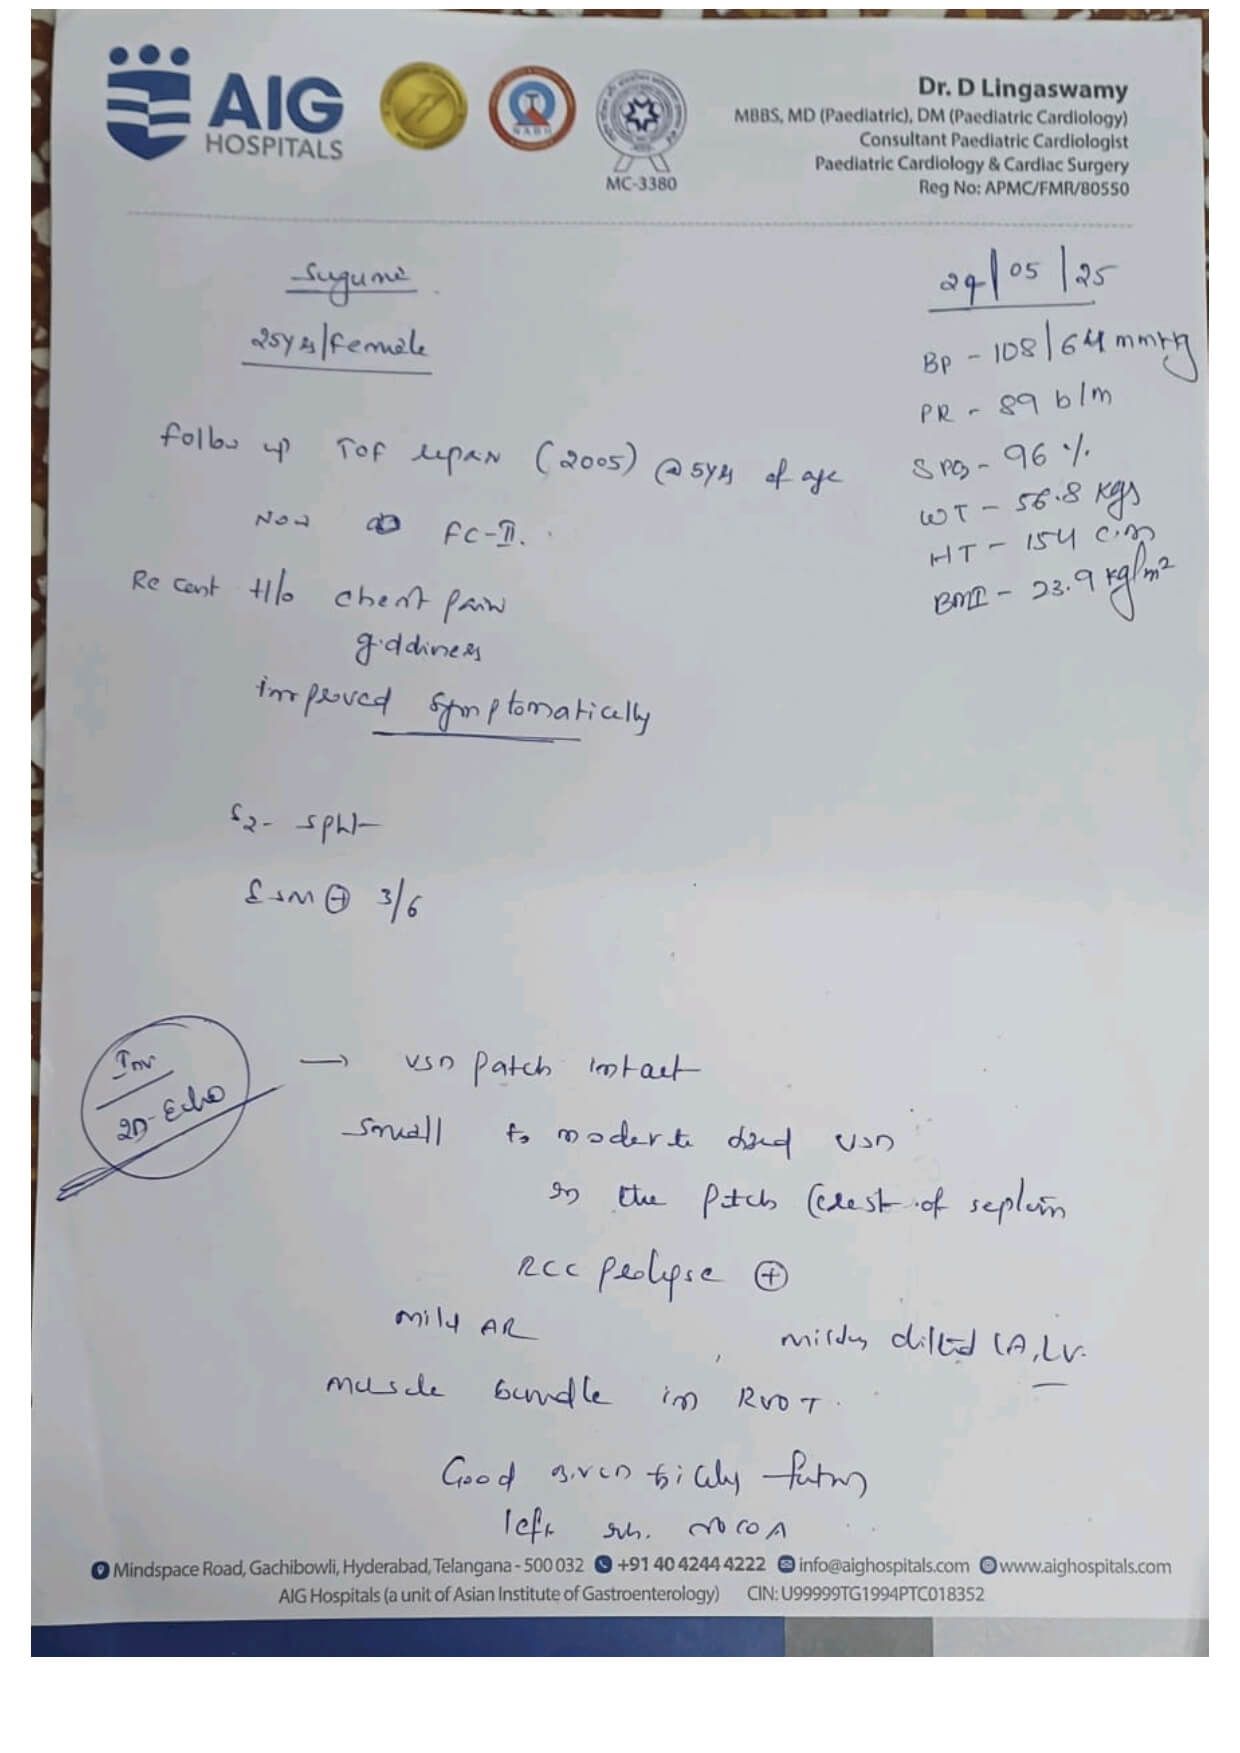 AIG
HOSPITALS
NABH
MC-3380
Dr. D Lingaswamy
MBBS, MD (Paediatric), DM (Paediatric Cardiology)
Consultant Paediatric Cardiologist
Paediatric Cardiology & Cardiac Surgery
Reg No: APMC/FMR/80550
25Yrs/Female
/05/25
BP - 108/64 mmHg
PR - 89 b/m
SPO2 - 96 %
WT - 56.8 kgs
HT - 154 cm
BMI - 23.9 kg/m2
Follow up TOF repair (2005) @ 5yrs of age
Now FC-II.
Recent H/o chest pain
giddiness
improved symptomatically
S2 - split
ESM ⊕ 3/6
Inv
2D-Echo
→ VSD patch intact
small to moderate sized VSD
in the patch (crest of septum
RCC prolapse ⊕
mild AR , mildly dilated LA, LV.
muscle bundle in RVOT.
Good biventricular
left no COA
Mindspace Road, Gachibowli, Hyderabad, Telangana - 500 032 +91 40 4244 4222 info@aighospitals.com www.aighospitals.com
AIG Hospitals (a unit of Asian Institute of Gastroenterology) CIN: U99999TG1994PTC018352